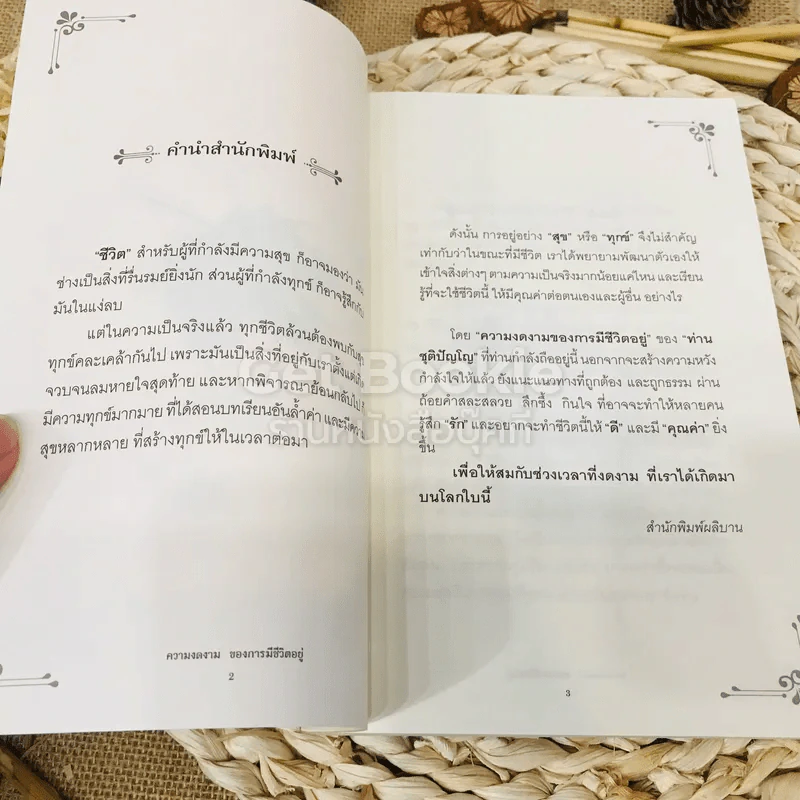 คำนำสำนักพิมพ์
"ชีวิต" สำหรับผู้ที่กำลังมีความสุข ก็อาจมองว่า มัน
ช่างเป็นสิ่งที่รื่นรมย์ยิ่งนัก ส่วนผู้ที่กำลังทุกข์ ก็อาจรู้สึกกับ
มันในแง่ลบ
แต่ในความเป็นจริงแล้ว ทุกชีวิตล้วนต้องพบกับสุข
ทุกข์คละเคล้ากันไป เพราะมันเป็นสิ่งที่อยู่กับเราตั้งแต่เกิด
จวบจนลมหายใจสุดท้าย และหากพิจารณาย้อนกลับไป
มีความทุกข์มากมาย ที่ได้สอนบทเรียนอันล้ำค่า และมีความ
สุขหลากหลาย ที่สร้างทุกข์ให้ในเวลาต่อมา
ความงดงาม ของการมีชีวิตอยู่
2
ดังนั้น การอยู่อย่าง "สุข" หรือ "ทุกข์" จึงไม่สำคัญ
เท่ากับว่าในขณะที่มีชีวิต เราได้พยายามพัฒนาตัวเองให้
เข้าใจสิ่งต่างๆ ตามความเป็นจริงมากน้อยแค่ไหน และเรียน
รู้ที่จะใช้ชีวิตนี้ ให้มีคุณค่าต่อตนเองและผู้อื่น อย่างไร
โดย "ความงดงามของการมีชีวิตอยู่" ของ "ท่าน
ชุติปัญโญ" ที่ท่านกำลังถืออยู่นี้ นอกจากจะสร้างความหวัง
กำลังใจให้แล้ว ยังแนะแนวทางที่ถูกต้อง และถูกธรรม ผ่าน
ถ้อยคำสละสลวย ลึกซึ้ง กินใจ ที่อาจจะทำให้หลายคน
รู้สึก "รัก" และอยากจะทำชีวิตนี้ให้ "ดี" และมี "คุณค่า" ยิ่ง
ขึ้น
เพื่อให้สมกับช่วงเวลาที่งดงาม ที่เราได้เกิดมา
บนโลกใบนี้
สำนักพิมพ์ผลิบาน
3
Get Bookie
ร้านหนังสือบุ๊คกี้